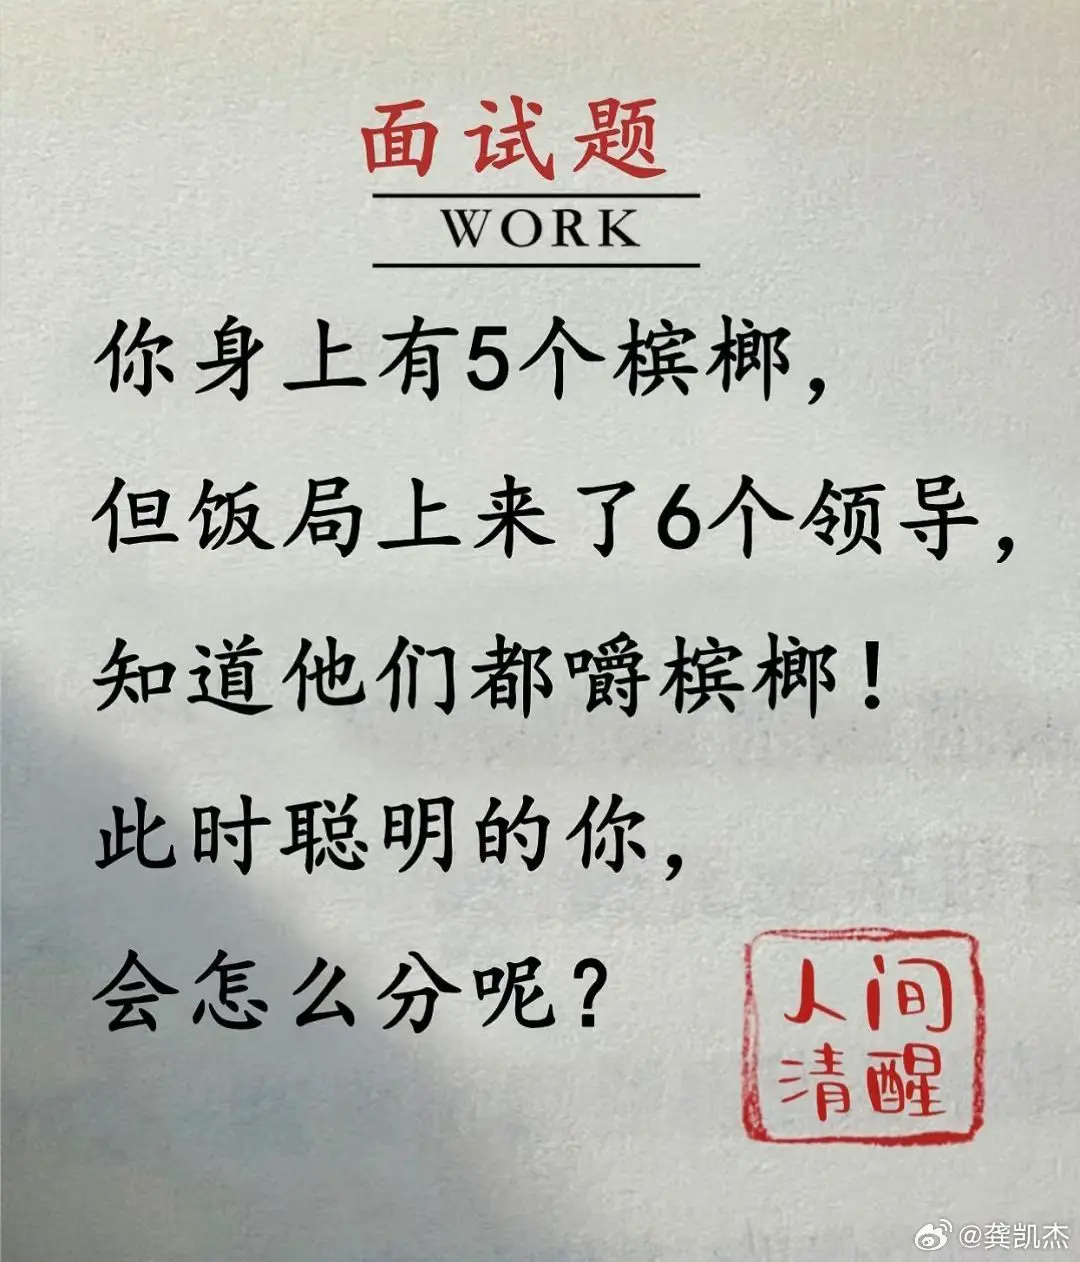 面试题
WORK
你身上有5个槟榔，
但饭局上来了6个领导，
知道他们都嚼槟榔！
此时聪明的你，
会怎么分呢？
人间
清醒
@龚凯杰